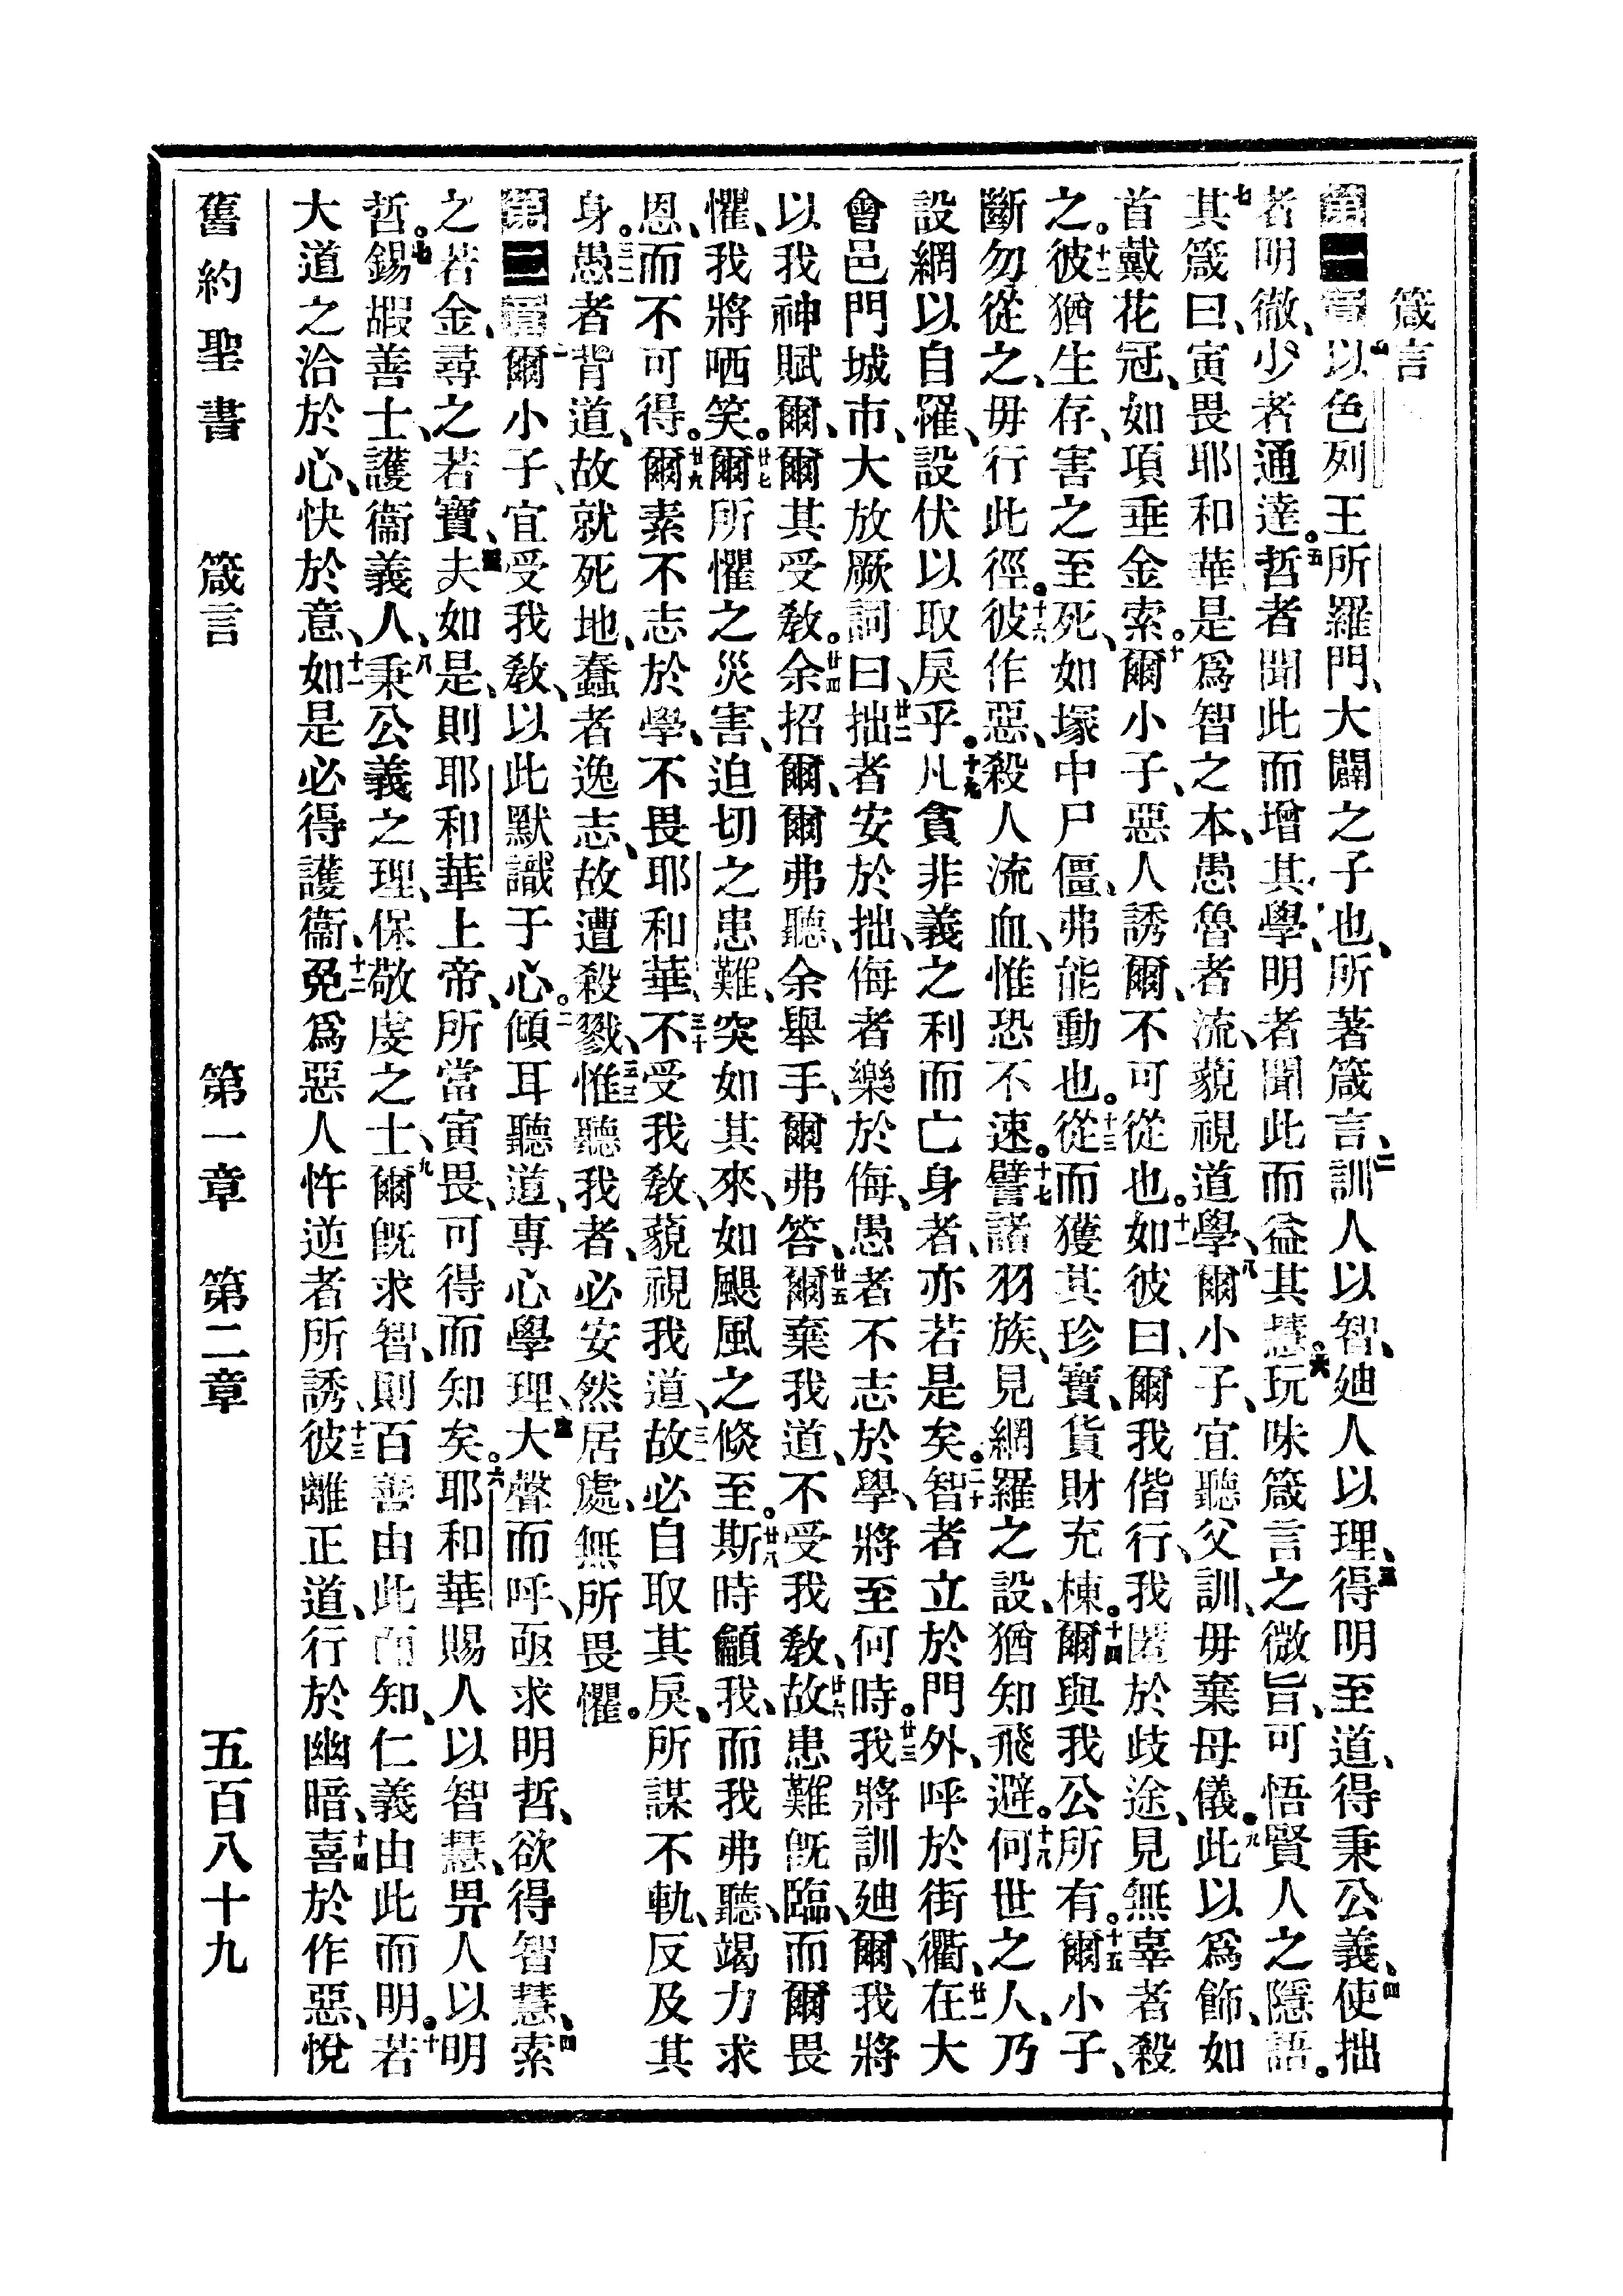 箴言
第一章一以色列王所羅門、大闢之子也、所著箴言、二訓人以智、廸人以理、三得明至道、得秉公義、四使拙
者明徹、少者通達。五哲者聞此而增其學、明者聞此而益其慧。六玩味箴言之微旨、可悟賢人之隱語。
七其箴曰、寅畏耶和華是爲智之本、愚魯者流、藐視道學、八爾小子、宜聽父訓、毋棄母儀。九此以爲飾、如
首戴花冠、如項垂金索。十爾小子、惡人誘爾、不可從也。十一如彼曰、爾我偕行、我匿於歧途、見無辜者殺
之。十二彼猶生存、害之至死、如塚中尸僵、弗能動也。十三從而獲其珍寶、貨財充棟。十四爾與我公所有。十五爾小子、
斷勿從之、毋行此徑。十六彼作惡、殺人流血、惟恐不速。十七譬諸羽族、見網羅之設、猶知飛避。十八何世之人、乃
設網以自罹、設伏以取戾乎。十九凡貪非義之利而亡身者、亦若是矣。二十智者立於門外、呼於街衢、廿一在大
會邑門城市、大放厥詞曰、廿二拙者安於拙、侮者樂於侮、愚者不志於學、將至何時。廿三我將訓廸爾、我將
以我神賦爾、爾其受敎。廿四余招爾、爾弗聽、余舉手、爾弗答、廿五爾棄我道、不受我敎、廿六故患難旣臨、而爾畏
懼、我將哂笑。廿七爾所懼之災害、迫切之患難、突如其來、如颶風之倏至。廿八斯時龥我、而我弗聽、竭力求
恩、而不可得。廿九爾素不志於學、不畏耶和華、三十不受我敎、藐視我道、三一故必自取其戾、所謀不軌、反及其
身。三二愚者背道、故就死地、蠢者逸志、故遭殺戮、三三惟聽我者、必安然居處、無所畏懼。
第二章一爾小子、宜受我敎、以此默識于心。二傾耳聽道、專心學理、三大聲而呼、亟求明哲、欲得智慧、四索
之若金、尋之若寶、五夫如是、則耶和華上帝、所當寅畏、可得而知矣。六耶和華賜人以智慧、畀人以明
哲。七錫嘏善士、護衞義人、八秉公義之理、保敬虔之士、九爾旣求智、則百善由此而知、仁義由此而明。十若
大道之洽於心、快於意、十一如是必得護衞、十二免爲惡人忤逆者所誘、十三彼離正道、行於幽暗、十四喜於作惡、悅
舊約聖書　箴言　第一章　第二章　五百八十九